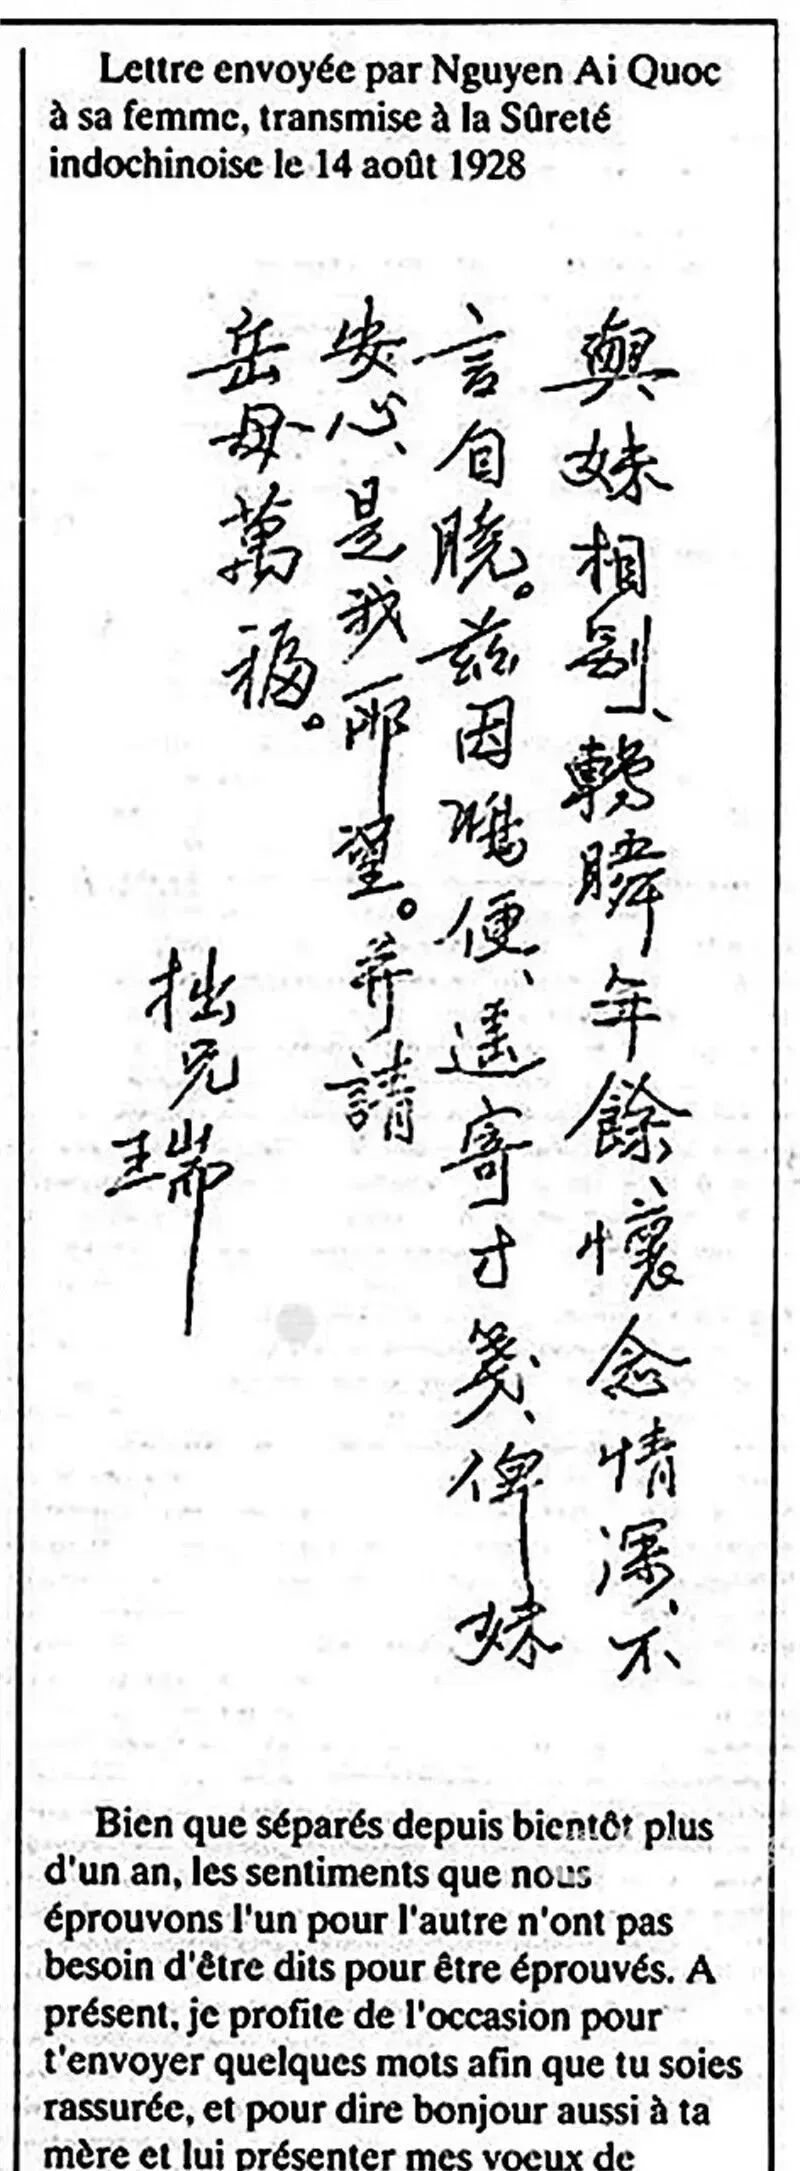 Lettre envoyée par Nguyen Ai Quoc
à sa femme, transmise à la Sûreté
indochinoise le 14 août 1928
與妹相別、轉瞬年餘、懷念情深、不
言自曉。茲因鴻便、遙寄寸箋、俾妹
安心、是我所望。并請
岳母萬福。
拙兄瑞
Bien que séparés depuis bientôt plus
d'un an, les sentiments que nous
éprouvons l'un pour l'autre n'ont pas
besoin d'être dits pour être éprouvés. A
présent, je profite de l'occasion pour
t'envoyer quelques mots afin que tu soies
rassurée, et pour dire bonjour aussi à ta
mère et lui présenter mes voeux de